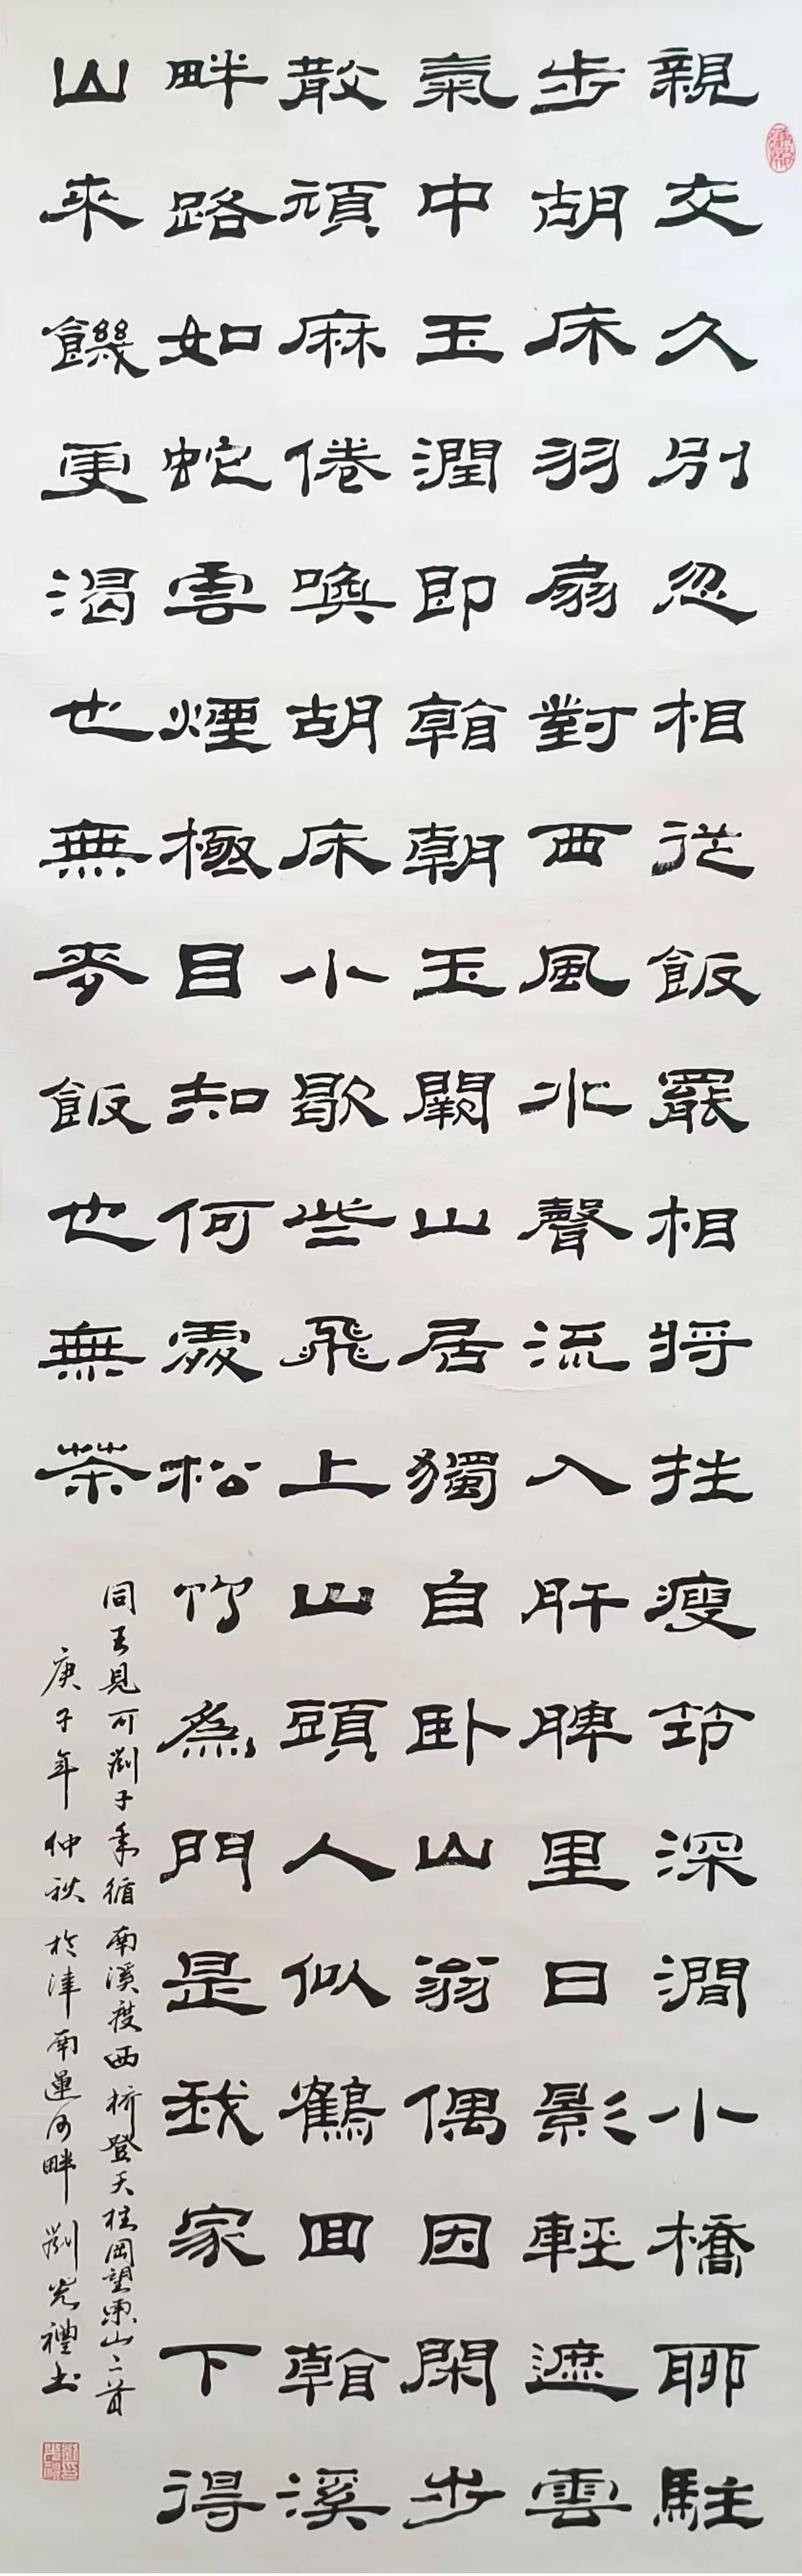 親交久別忽相從飯罷相將拄瘦筇深澗小橋聊駐
步胡床羽扇對西風水聲流入肝脾里日影輕遮雲
氣中玉潤即看朝玉闕山居獨自卧山翁偶因閑步
散頑麻倦喚胡床小歇些飛上山頭人似鶴回看溪
畔路如蛇雲煙極目知何處松竹為門是我家下得
山來饑更渴也無麥飯也無茶
同王見可劉子年循南溪度西桥登天柱岡望東山二首
庚子年仲秋於津南運河畔劉光禮书